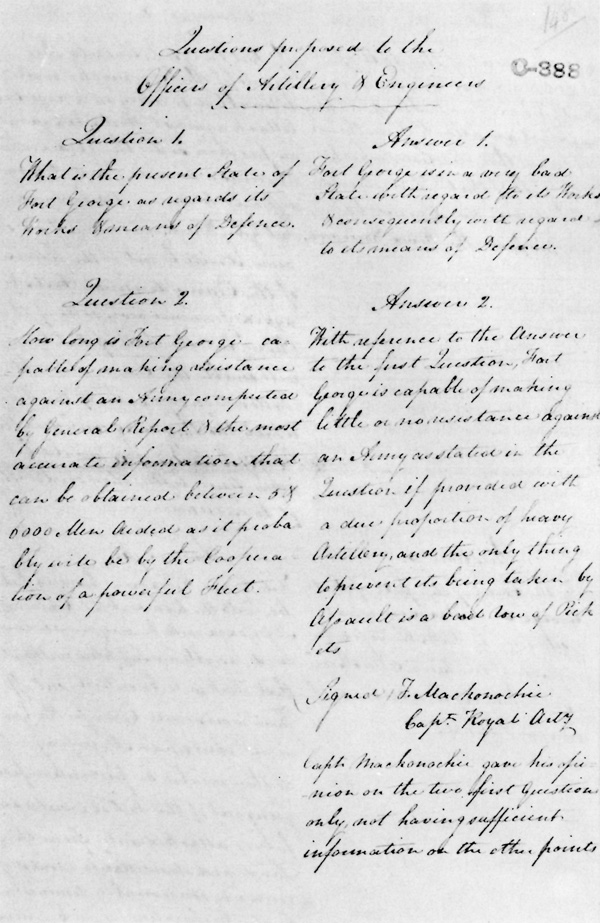 190
C-388
Questions proposed to the
Officers of Artillery & Engineers
Question 1.
What is the present State of
Fort George as regards its
Works & means of Defence.
Answer 1.
Fort George is in a very bad
State with regard to its Works
& consequently with regard
to its means of Defence.
Question 2.
How long is Fort George ca-
pable of making resistance
against an Army computed
by General Report & the most
accurate information that
can be obtained between 5 &
6000 Men Aided as it proba
bly will be by the Coopera
tion of a powerful Fleet.
Answer 2.
With reference to the Answer
to the first Question, Fort
George is capable of making
little or no resistance against
an Army as stated in the
Question if provided with
a due proportion of heavy
Artillery, and the only thing
to prevent its being taken by
Assault is a bad row of Pick
ets
Signed J. Mackonochie
Capt. Royal Arty
Capt. Mackonochie gave his opi
nion on the two first Questions
only, not having sufficient
information on the other points